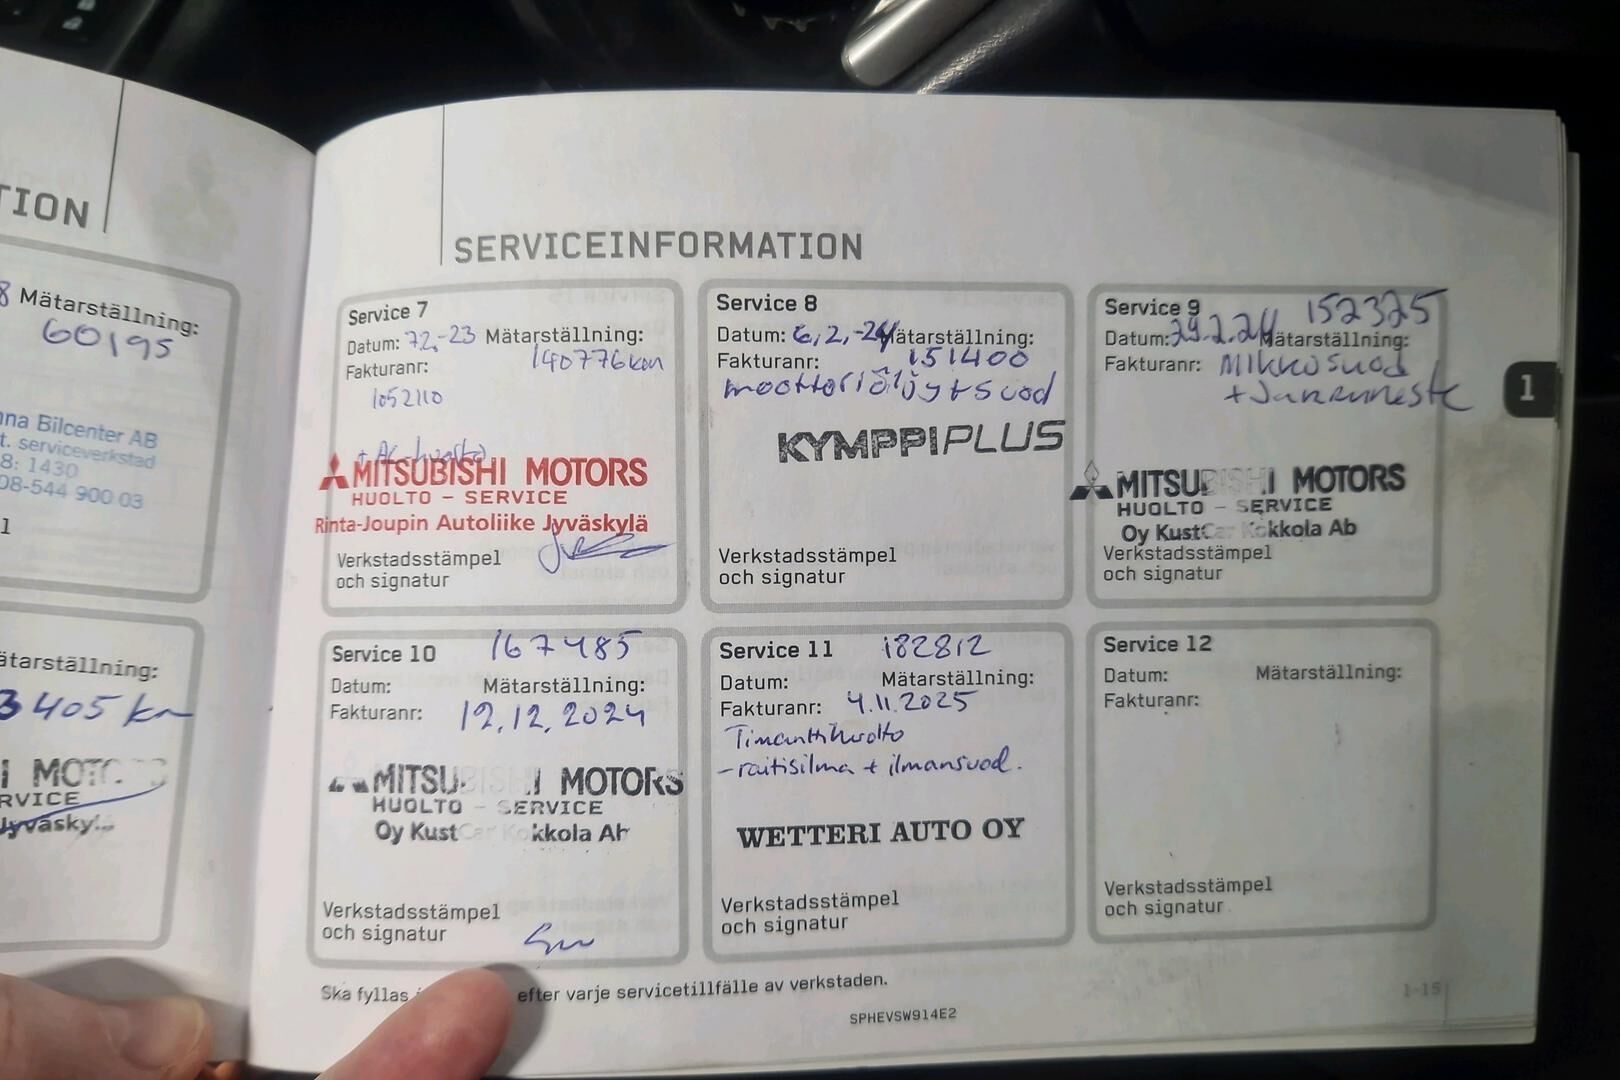 TION
Mätarställning:
60195
nna Bilcenter AB
t. serviceverkstad
8: 1430
08-544 900 03
ätarställning:
3405 km
I MOT
RVICE
Jyväsky
SERVICEINFORMATION
Service 7
Datum: 7.2.-23 Mätarställning:
140776km
Fakturanr:
1052110
+ AC-huolto
MITSUBISHI MOTORS
HUOLTO - SERVICE
Rinta-Joupin Autoliike Jyväskylä
Verkstadsstämpel
och signatur
Service 8
Datum: 6,2,-24 Mätarställning:
Fakturanr: 151400
moottoriöljy + suod
KYMPPIPLUS
Verkstadsstämpel
och signatur
Service 9 152325
Datum: 29.2.24 Mätarställning:
Fakturanr: Mikkosuod
+ Jarruneste
MITSUBISHI MOTORS
HUOLTO - SERVICE
Oy KustCar Kokkola Ab
Verkstadsstämpel
och signatur
Service 10 167485
Datum: Mätarställning:
Fakturanr: 12.12.2024
MITSUBISHI MOTORS
HUOLTO - SERVICE
Oy KustCar Kokkola Ab
Verkstadsstämpel
och signatur
Service 11 182812
Datum: Mätarställning:
Fakturanr: 4.11.2025
Timanttihuolto
- raitisilma + ilmansuod.
WETTERI AUTO OY
Verkstadsstämpel
och signatur
Service 12
Datum: Mätarställning:
Fakturanr:
Verkstadsstämpel
och signatur
1
Ska fyllas efter varje servicetillfälle av verkstaden.
SPHEVSW914E2
1-15